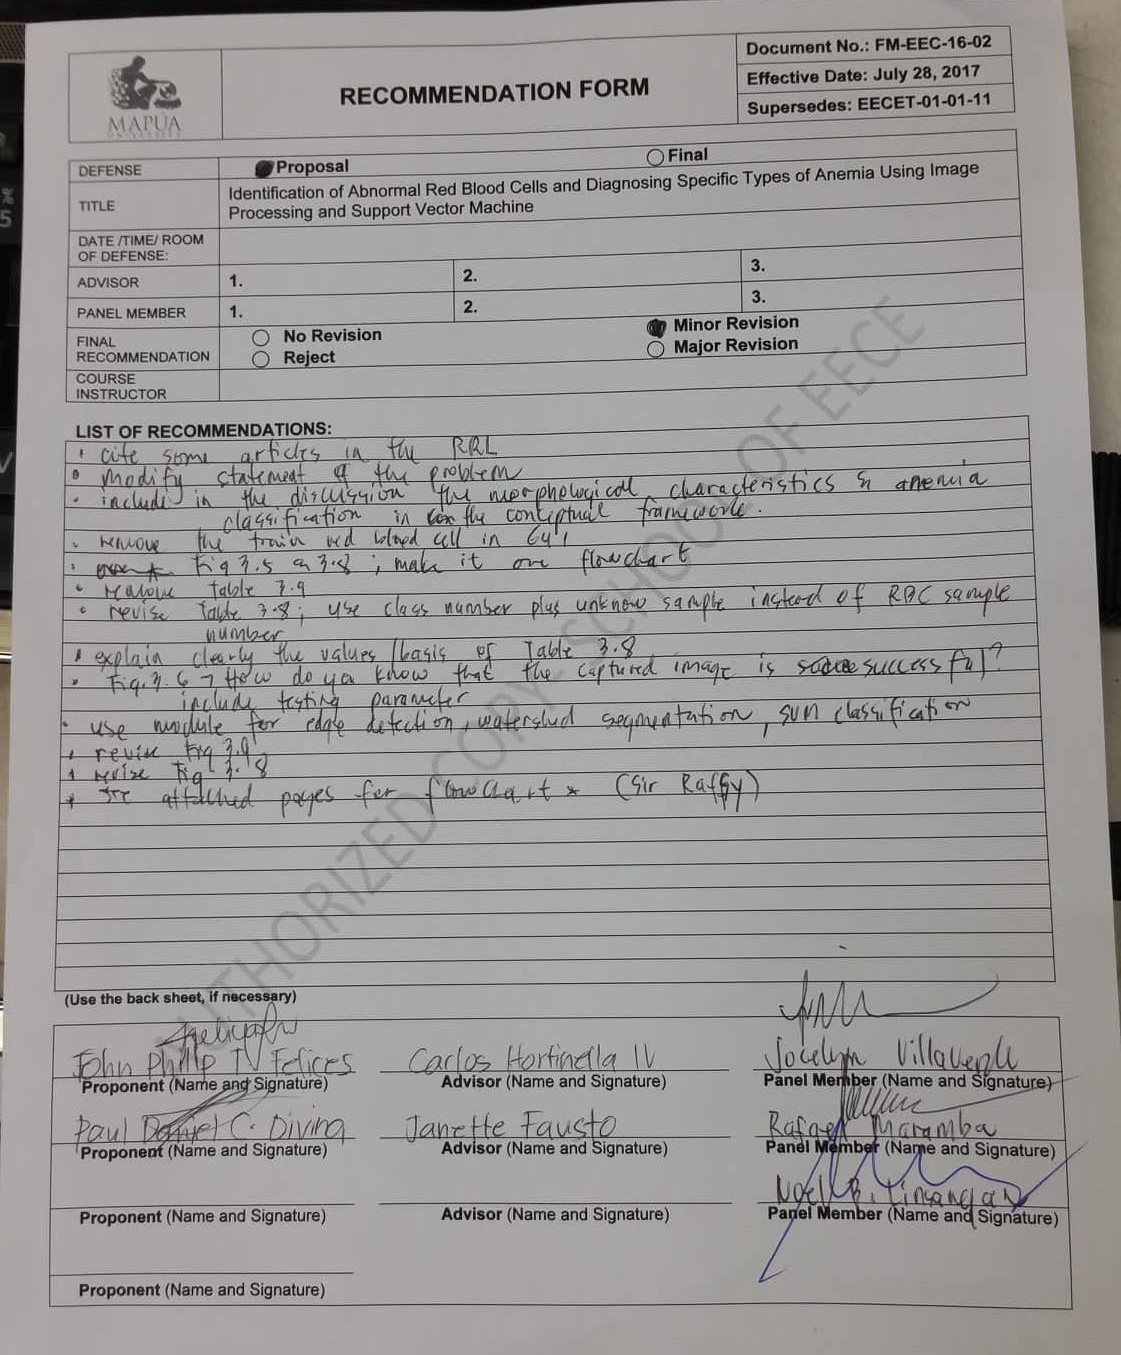 MAPÚA
UNIVERSITY
RECOMMENDATION FORM
Document No.: FM-EEC-16-02
Effective Date: July 28, 2017
Supersedes: EECET-01-01-11
DEFENSE
Proposal
Final
TITLE
Identification of Abnormal Red Blood Cells and Diagnosing Specific Types of Anemia Using Image
Processing and Support Vector Machine
DATE /TIME/ ROOM
OF DEFENSE:
ADVISOR
1.
2.
3.
PANEL MEMBER
1.
2.
3.
FINAL
RECOMMENDATION
No Revision
Reject
Minor Revision
Major Revision
COURSE
INSTRUCTOR
LIST OF RECOMMENDATIONS:
cite some articles in the RRL
modify statement of the problem
include in the discussion the morphological characteristics & anemia
classification in the conceptual framework.
remove the train red blood cell in
Fig 3.5 & 3.8 ; make it one flowchart
remove table 3.9
revise Table 3.8; use class number plus unknow sample instead of RBC sample
number
explain clearly the values /basis of Table 3.8
Fig. 3.6 → How do you know that the captured image is successful?
include testing parameter
use module for edge detection, watershed segmentation, SVM classification
revise Fig 3.9
revise Fig 3.18
see attached pages for flowchart * (Sir Raffy)
AUTHORIZED COPY - SCHOOL OF EECE
(Use the back sheet, if necessary)
John Philip T. Felices
Proponent (Name and Signature)
Carlos Hortinella IV
Advisor (Name and Signature)
Jocelyn Villaverde
Panel Member (Name and Signature)
Paul Daniel C. Divina
Proponent (Name and Signature)
Janette Fausto
Advisor (Name and Signature)
Rafael Maramba
Panel Member (Name and Signature)
Proponent (Name and Signature)
Advisor (Name and Signature)
Noel B. Linsangan
Panel Member (Name and Signature)
Proponent (Name and Signature)